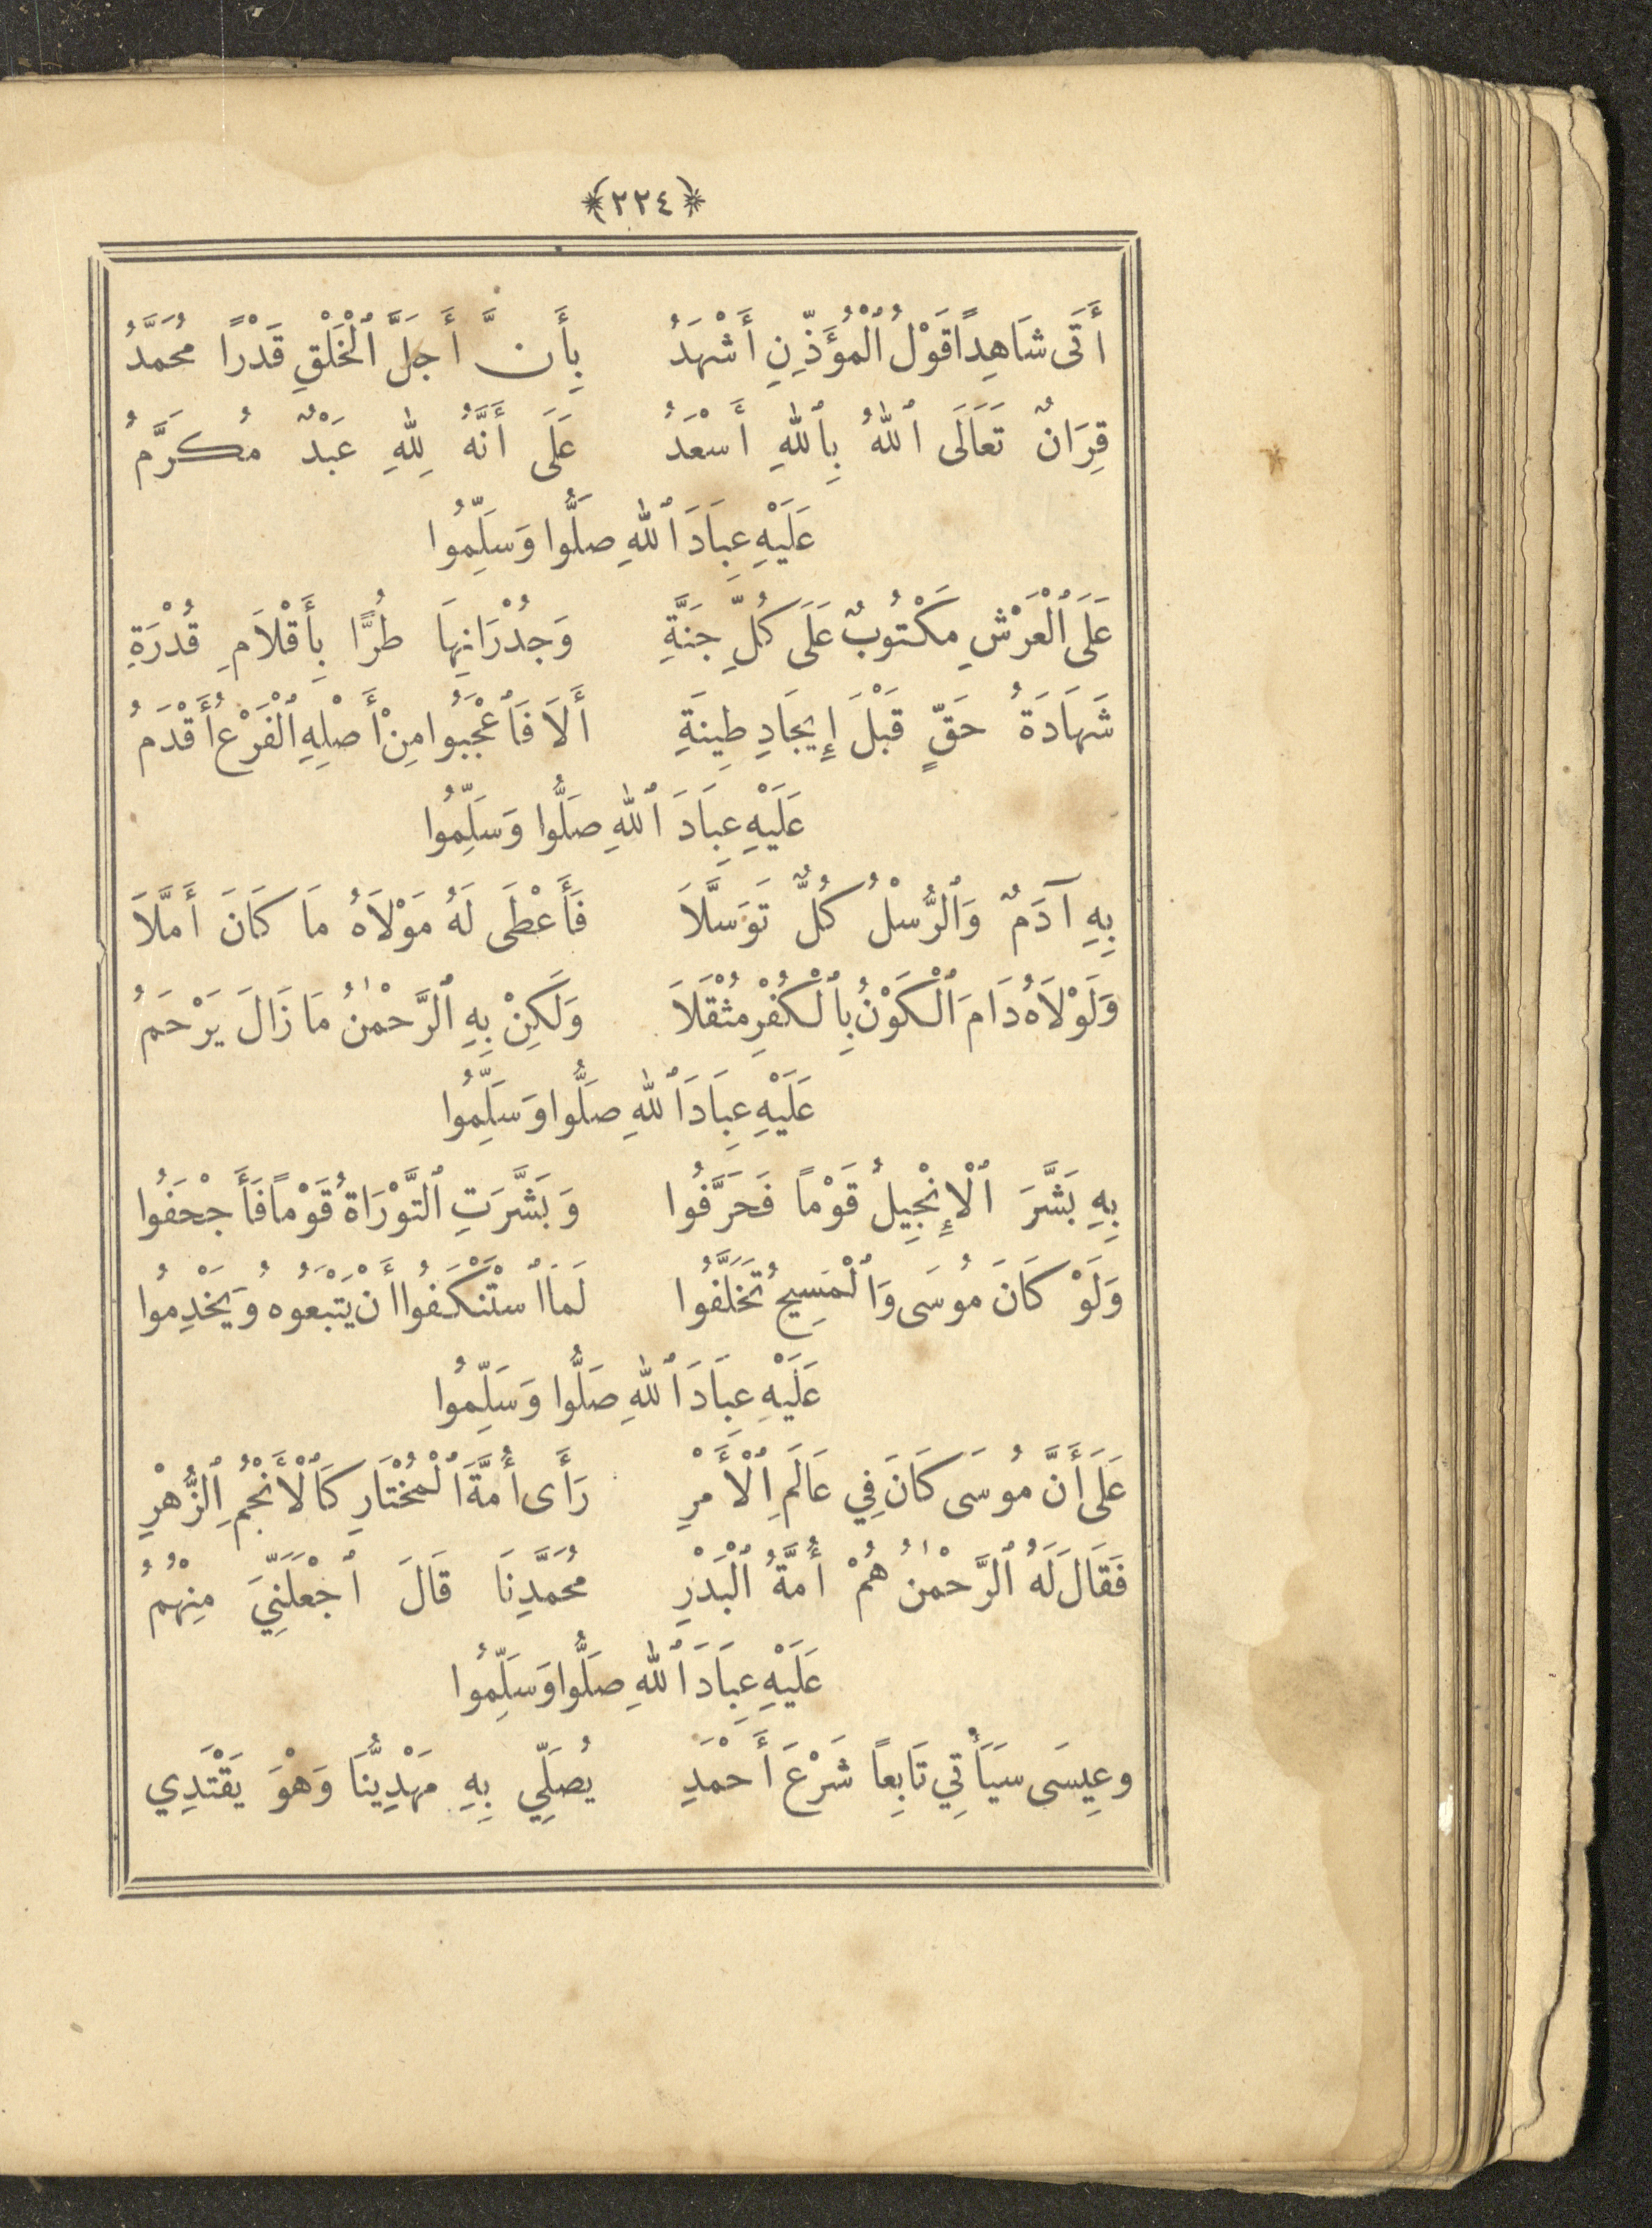 ﴿٢٢٤﴾
أَتَى شَاهِداً قَوْلُ ٱلْمُؤَذِّنِ أَشْهَدُ بِأَنَّ أَجَلَّ ٱلْخَلْقِ قَدْرًا مُحَمَّدُ
قِرَانٌ تَعَالَى ٱللهُ بِٱللهِ أَسْعَدُ عَلَى أَنَّهُ لِلهِ عَبْدٌ مُكَرَّمُ
عَلَيْهِ عِبَادَ ٱللهِ صَلُّوا وَسَلِّمُوا
عَلَى ٱلْعَرْشِ مَكْتُوبٌ عَلَى كُلِّ جَنَّةِ وَجُدْرَانِهَا طُرًّا بِأَقْلَامِ قُدْرَةِ
شَهَادَةُ حَقٍّ قَبْلَ إِيجَادِ طِينَةِ أَلَا فَٱعْجَبُوا مِنْ أَصْلِهِ ٱلْفَرْعُ أَقْدَمُ
عَلَيْهِ عِبَادَ ٱللهِ صَلُّوا وَسَلِّمُوا
بِهِ آدَمٌ وَٱلرُّسْلُ كُلٌّ تَوَسَّلَا فَأَعْطَى لَهُ مَوْلَاهُ مَا كَانَ أَمَّلَا
وَلَوْلَاهُ دَامَ ٱلْكَوْنُ بِٱلْكُفْرِ مُثْقَلَا وَلَكِنْ بِهِ ٱلرَّحْمٰنُ مَا زَالَ يَرْحَمُ
عَلَيْهِ عِبَادَ ٱللهِ صَلُّوا وَسَلِّمُوا
بِهِ بَشَّرَ ٱلْإِنْجِيلُ قَوْماً فَحَرَّفُوا وَبَشَّرَتِ ٱلتَّوْرَاةُ قَوْماً فَأَجْحَفُوا
وَلَوْ كَانَ مُوسَى وَٱلْمَسِيحُ تَخَلَّفُوا لَمَا ٱسْتَنْكَفُوا أَنْ يَتْبَعُوهُ وَيَخْدِمُوا
عَلَيْهِ عِبَادَ ٱللهِ صَلُّوا وَسَلِّمُوا
عَلَى أَنَّ مُوسَى كَانَ فِي عَالَمِ ٱلْأَمْرِ رَأَى أُمَّةَ ٱلْمُخْتَارِ كَٱلْأَنْجُمِ ٱلزُّهْرِ
فَقَالَ لَهُ ٱلرَّحْمٰنُ هُمْ أُمَّةُ ٱلْبَدْرِ مُحَمَّدِنَا قَالَ ٱجْعَلَنِّيَ مِنْهُمُ
عَلَيْهِ عِبَادَ ٱللهِ صَلُّوا وَسَلِّمُوا
وعِيسَى سَيَأْتِي تَابِعاً شَرْعَ أَحْمَدِ يُصَلِّي بِهِ مَهْدِيُّنَا وَهْوَ يَقْتَدِي